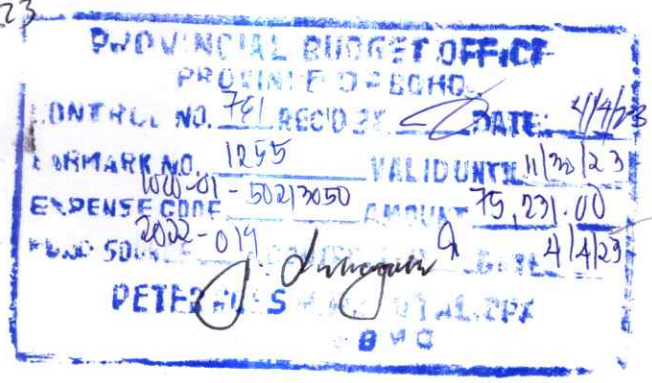 23
PROVINCIAL BUDGET OFFICE
PROVINCE OF BOHO
CONTROL NO. 761 REC'D BY DATE: 4/4/23
EARMARK NO. 1255 VALID UNTIL 11/30/23
1020-01-50213050
EXPENSE CODE AMOUNT 75,231.00
2022-019 4/4/23
FUND SOURCE DATE